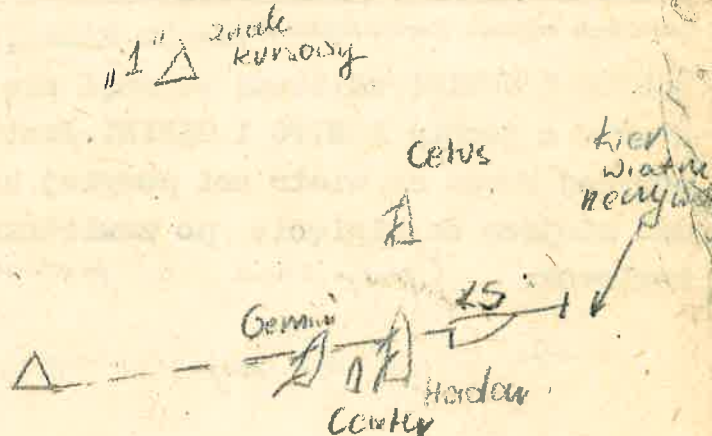 „1" znak
kursowy
Cetus
kier
wiatru
rzeczywist
LS
Gemini
Hadar
Center